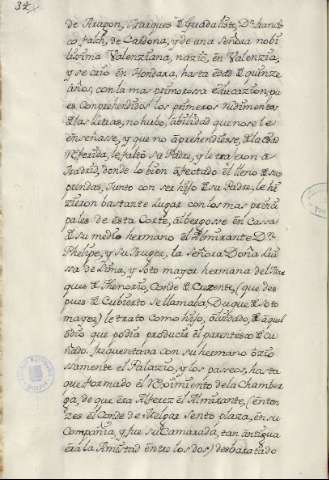 de Aragon, Marques de Guadaleste, Dn. Francis
co falch, de Cardona, y de una Señora nobi
lissima Valenziana, nazio, en Valenzia,
y se crio en Hondara, hasta edad de quinze
años, con la mas primorosa Educazion, pu
es Comprehendidos los primeros rudimentos
de las letras, no hubo, abilidad que no se le
enseñase, y que no aprehendiese, de la edad
referida, le falto su Padre, y le trajeron a
Madrid, donde lo bien afectado el lleno de sus
prendas, Junto con ser hijo de su Padre, le hi
zieron bastante lugar con los mas prinzi
pales de esta Corte, albergose en Casa
de su medio hermano el Almirante Dn.
Phelipe, y su Muger, la Señora Doña Lui
sa de Zuñiga, y Soto mayor hermana del Mar
ques de Thenorio, Conde de Crezente, (que des
pues de Cubierto se llamaba Duque de Soto
mayor) le trato como hijo, olvidado, de aquel
odio que podia producir el parentesco de Cu
ñado. frequentava con su hermano ozio
ssamente el Palazio, y los paseos, hasta
que formado el reximiento de la Chamber
ga, de que era Alferez el Almirante, (enton
zes el Conde de Melgar) sento plaza, en su
Compañia, y fue su Camarada, tan antigua
era la Amistad entre los dos) desbaratado